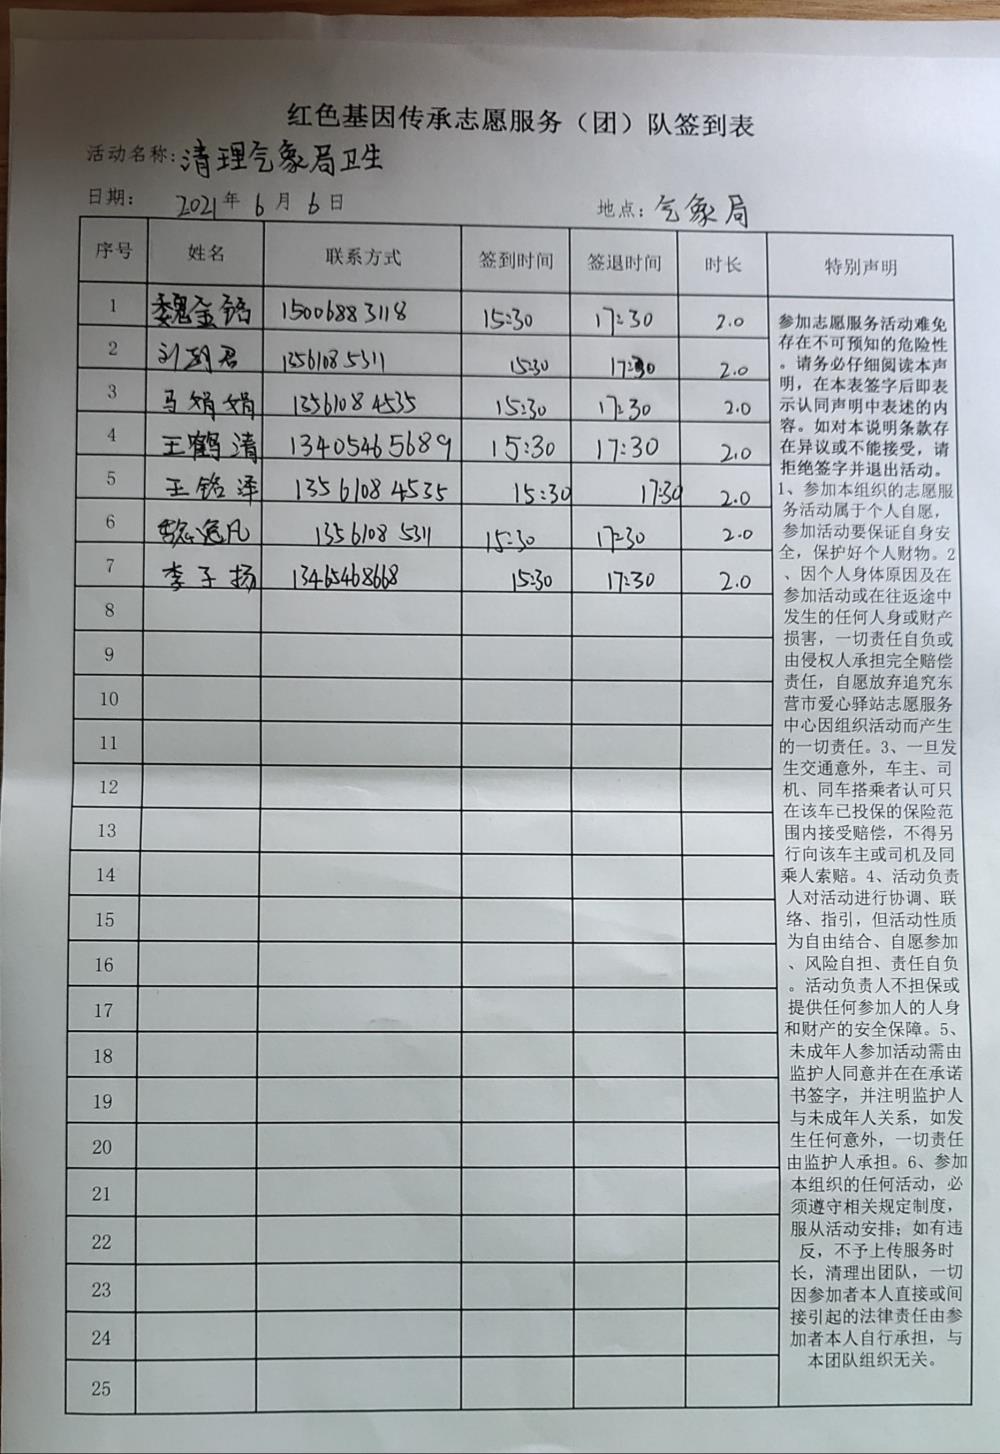 红色基因传承志愿服务（团）队签到表
活动名称:清理气象局卫生
日期： 2021年 6月 6日 地点：气象局
序号 姓名 联系方式 签到时间 签退时间 时长 特别声明
1 魏金铭 15006883118 15:30 17:30 2.0
2 刘君 13561085311 15:30 17:30 2.0
3 马娟娟 13561084535 15:30 17:30 2.0
4 王鹤清 13405465689 15:30 17:30 2.0
5 王铭泽 13561084535 15:30 17:30 2.0
6 逸凡 13561085311 15:30 17:30 2.0
7 李子扬 13465468668 15:30 17:30 2.0
8
9
10
11
12
13
14
15
16
17
18
19
20
21
22
23
24
25
参加志愿服务活动难免
存在不可预知的危险性
。请务必仔细阅读本声
明，在本表签字后即表
示认同声明中表述的内
容。如对本说明条款存
在异议或不能接受，请
拒绝签字并退出活动。
1、参加本组织的志愿服
务活动属于个人自愿，
参加活动要保证自身安
全，保护好个人财物。2
、因个人身体原因及在
参加活动或在往返途中
发生的任何人身或财产
损害，一切责任自负或
由侵权人承担完全赔偿
责任，自愿放弃追究东
营市爱心驿站志愿服务
中心因组织活动而产生
的一切责任。3、一旦发
生交通意外，车主、司
机、同车搭乘者认可只
在该车已投保的保险范
围内接受赔偿，不得另
行向该车主或司机及同
乘人索赔。4、活动负责
人对活动进行协调、联
络、指引，但活动性质
为自由结合、自愿参加
、风险自担、责任自负
。活动负责人不担保或
提供任何参加人的人身
和财产的安全保障。5、
未成年人参加活动需由
监护人同意并在在承诺
书签字，并注明监护人
与未成年人关系，如发
生任何意外，一切责任
由监护人承担。6、参加
本组织的任何活动，必
须遵守相关规定制度，
服从活动安排；如有违
反，不予上传服务时
长，清理出团队，一切
因参加者本人直接或间
接引起的法律责任由参
加者本人自行承担，与
本团队组织无关。